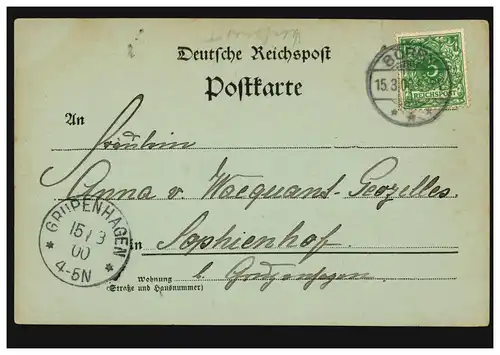 Deutsche Reichspost
Postkarte
BÖRRY
15.3.00
REICHSPOST
An
Fräulein
Anna v. Wacquant-Geozelles
GRUPENHAGEN
15/3
00
4-5N
in Sophienhof
b. Grupenhagen
Wohnung
(Straße und Hausnummer)